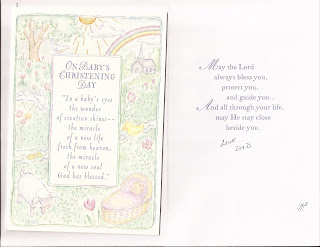 ON BABY'S
CHRISTENING
DAY
"In a baby's eyes
the wonder
of creation shines--
the miracle
of a new life
fresh from heaven,
the miracle
of a new soul
God has blessed."
May the Lord
always bless you,
protect you,
and guide you...
And all through your life,
may He stay close
beside you.
Love
DAD